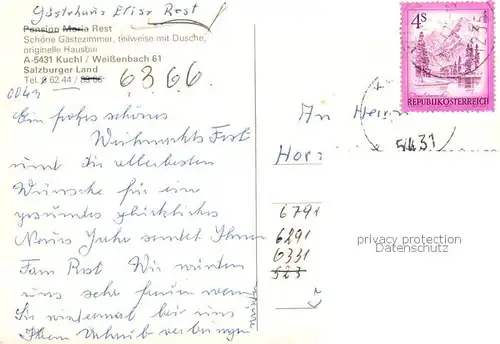 Gästehaus Elisa Rest
Pension Maria Rest
Schöne Gästezimmer, teilweise mit Dusche,
originelle Hausbar
A-5431 Kuchl / Weißenbach 61
Salzburger Land
Tel. 0 62 44 /
6366
0043
Ein frohes schönes
Weihnachts Fest
und die allerbesten
Wünsche für ein
gesundes glückliches
Neues Jahr sendet Ihnen
Fam Rest Wir würden
uns sehr freuen wenn
Sie wieder mal bei uns
Ihren Urlaub verbringen
4S
REPUBLIK ÖSTERREICH
5431
An Herrn
6791
6291
6331
523
privacy protection
Datenschutz